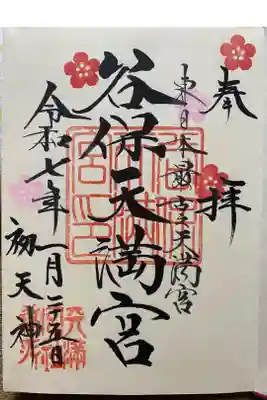 奉拝
東日本最古天満宮
谷保天満宮
令和七年一月二十五日
初天神